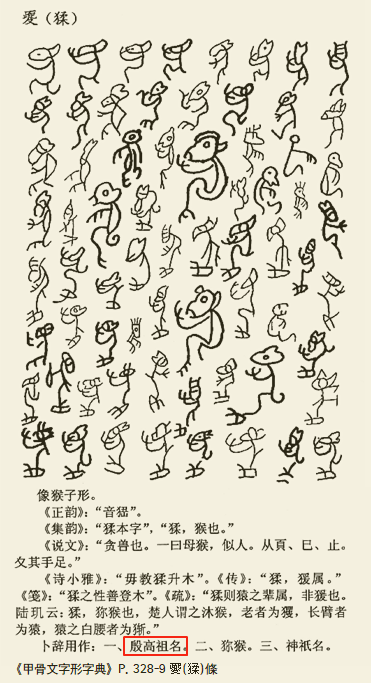 夒（猱）
像猴子形。
《正韵》：“音。”
《集韵》：“猱本字”，“猱，猴也。”
《说文》：“贪兽也。一曰母猴，似人。从頁、巳、止。
夊其手足。”
《诗小雅》：“毋教猱升木”。《传》：“猱，猨属。”
《笺》：“猱之性善登木”。《疏》：“猱则猿之辈属，非猨也。
陆玑云：猱，弥猴也，楚人谓之沐猴，老者为玃，长臂者
为猿，猿之白腰者为獑。”
卜辞用作：一、殷高祖名。二、弥猴。三、神祇名。
《甲骨文字形字典》P. 328-9 夒(猱)條